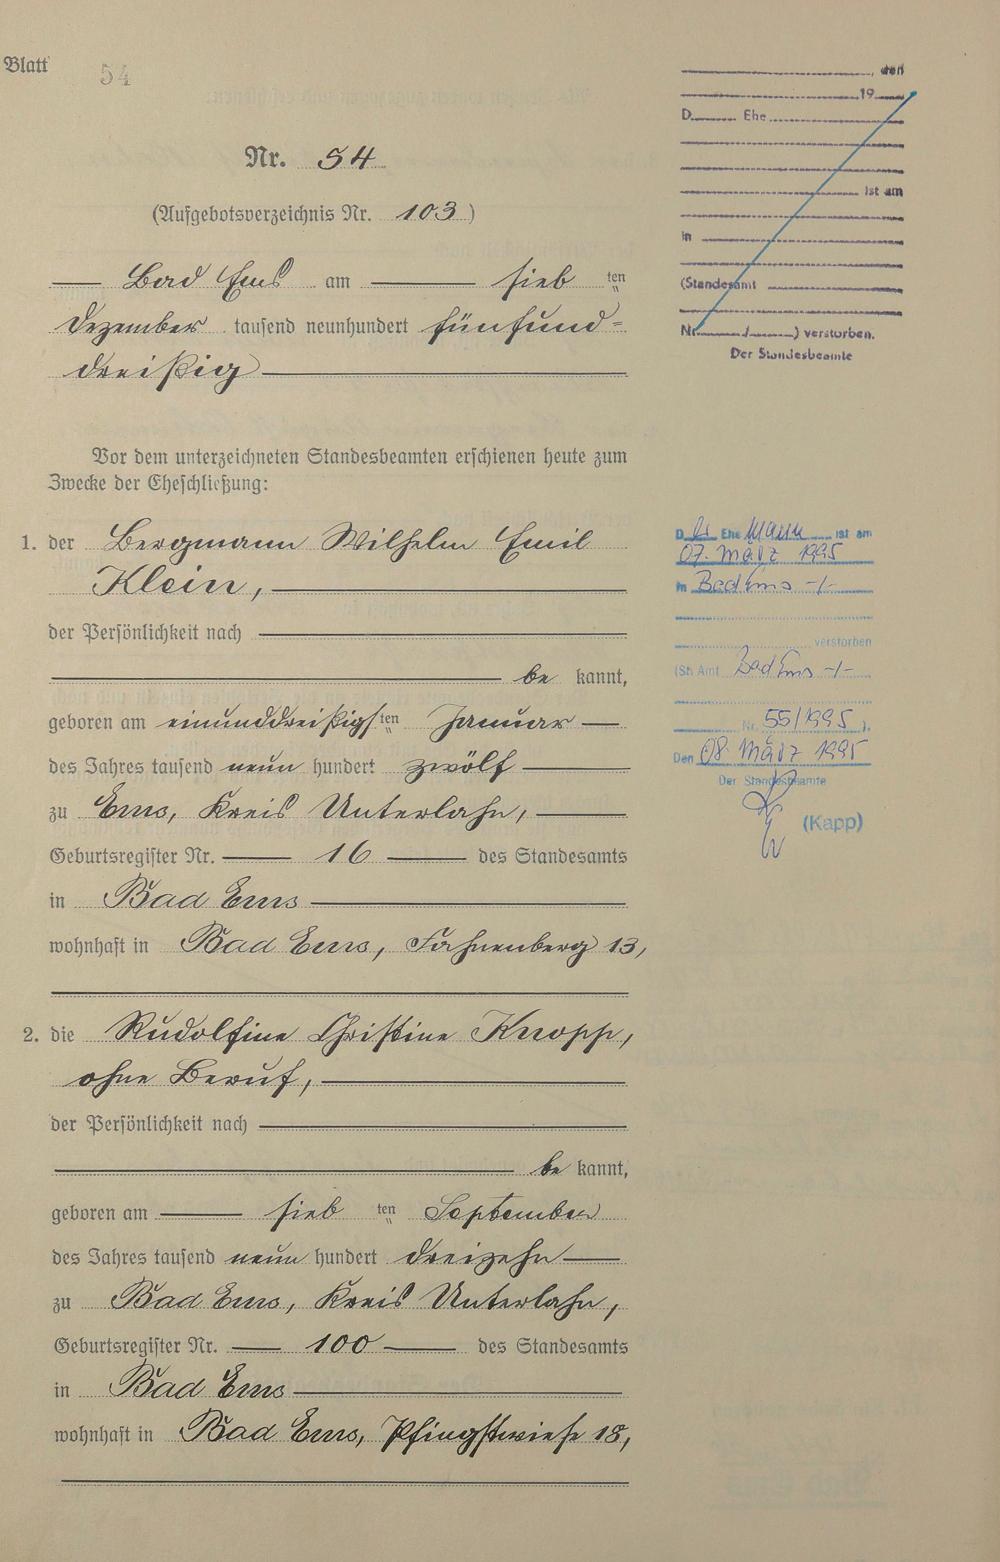 Blatt 54
Nr. 54
(Aufgebotsverzeichnis Nr. 103)
Bad Ems am sieb ten
Dezember tausend neunhundert fünfund=
dreißig
Vor dem unterzeichneten Standesbeamten erschienen heute zum
Zwecke der Eheschließung:
1. der Bergmann Wilhelm Emil
Klein,
der Persönlichkeit nach
be kannt,
geboren am einunddreißigsten Januar
des Jahres tausend neun hundert zwölf
zu Ems, Kreis Unterlahn,
Geburtsregister Nr. 16 des Standesamts
in Bad Ems
wohnhaft in Bad Ems, Fahnenberg 13,
2. die Rudolfine Christine Knopp,
ohne Beruf,
der Persönlichkeit nach
be kannt,
geboren am sieb ten September
des Jahres tausend neun hundert dreizehn
zu Bad Ems, Kreis Unterlahn,
Geburtsregister Nr. 100 des Standesamts
in Bad Ems
wohnhaft in Bad Ems, Pfingstwiese 18,
, den
19
D Ehe
ist am
in
(Standesamt
Nr. / ) verstorben.
Der Standesbeamte
D er Ehe Mann ist am
07. März 1995
in Bad Ems -/-
verstorben
(St. Amt Bad Ems -/-
Nr. 55/1995 ).
Den 08. März 1995
Der Standesbeamte
(Kapp)